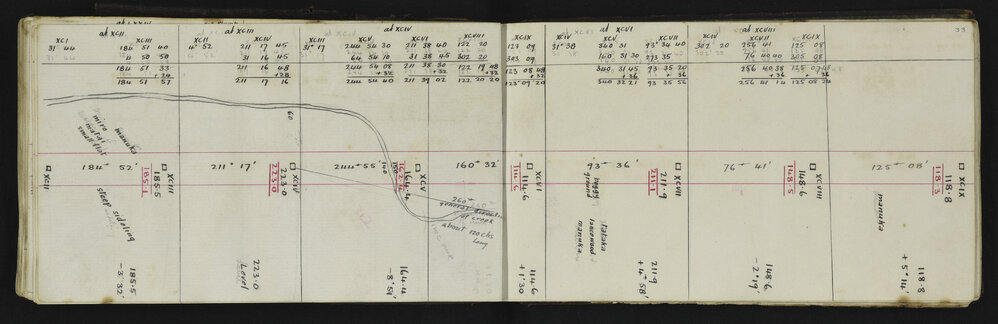 33
at XCIII
XCI XCIII
31 44 184 51 40
4 50 50
184 51 33
+ 24
184 51 57
at XCIII
XCII XCIV
4° 52 211 17 45
31 16 45
211 16 48
+28
211 17 16
at XCIV
XCIII XCV
31° 17 244 54 30
64 54 10
244 54 08
+32
244 54 40
at XCV
XCVI
211 38 40
31 38 45
211 38 30
+32
211 39 02
XCVIII
122 20
302 20
122 19 48
+32
122 20 20
XCIX
123 09
303 09
123 08 48
+32
123 09 20
at XCVI
XCIV XCV XCVII
31° 38 340 31 93° 34 40
160 31 30 273 35
340 31 45 93 35 20
+36 +36
340 32 21 93 35 56
at XCVII
XCV XCVIII XCIX
302 20 256 41 125 08
76 40 40 305 08
256 40 38 125 07 48
+36 +36
256 41 14 125 08 24
miro
matai
small flat
manuka
60
XCII
184° 52'
185·1
185·5
XCIII
211° 17'
223·0
223·0
XCIV
244° 55'
140
150
162·2
164·4
XCV
160° 32'
XCVI
114·6
114·6
93° 36'
XCVII
211·9
211·1
76° 41'
XCVIII
148·6
148·5
125° 08'
XCIX
118·8
118·3
steep sideling
260°
general direction
of creek
about 120 chs
long
boggy
ground
tataka
lancewood
manuka
manuka
185·5
- 3° 32'
223·0
Level
164·4
- 8° 51'
114·6
+ 1° 30
211·9
+ 4° 58'
148·6
- 2° 19'
118·8
+ 5° 14'